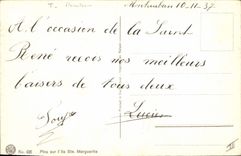 Montauban 10-11-37
A l'occasion de la Saint
René reçois nos meilleurs
baisers de tous deux
Lucien
No. 436 Pins sur l'Ile Ste. Marguerite